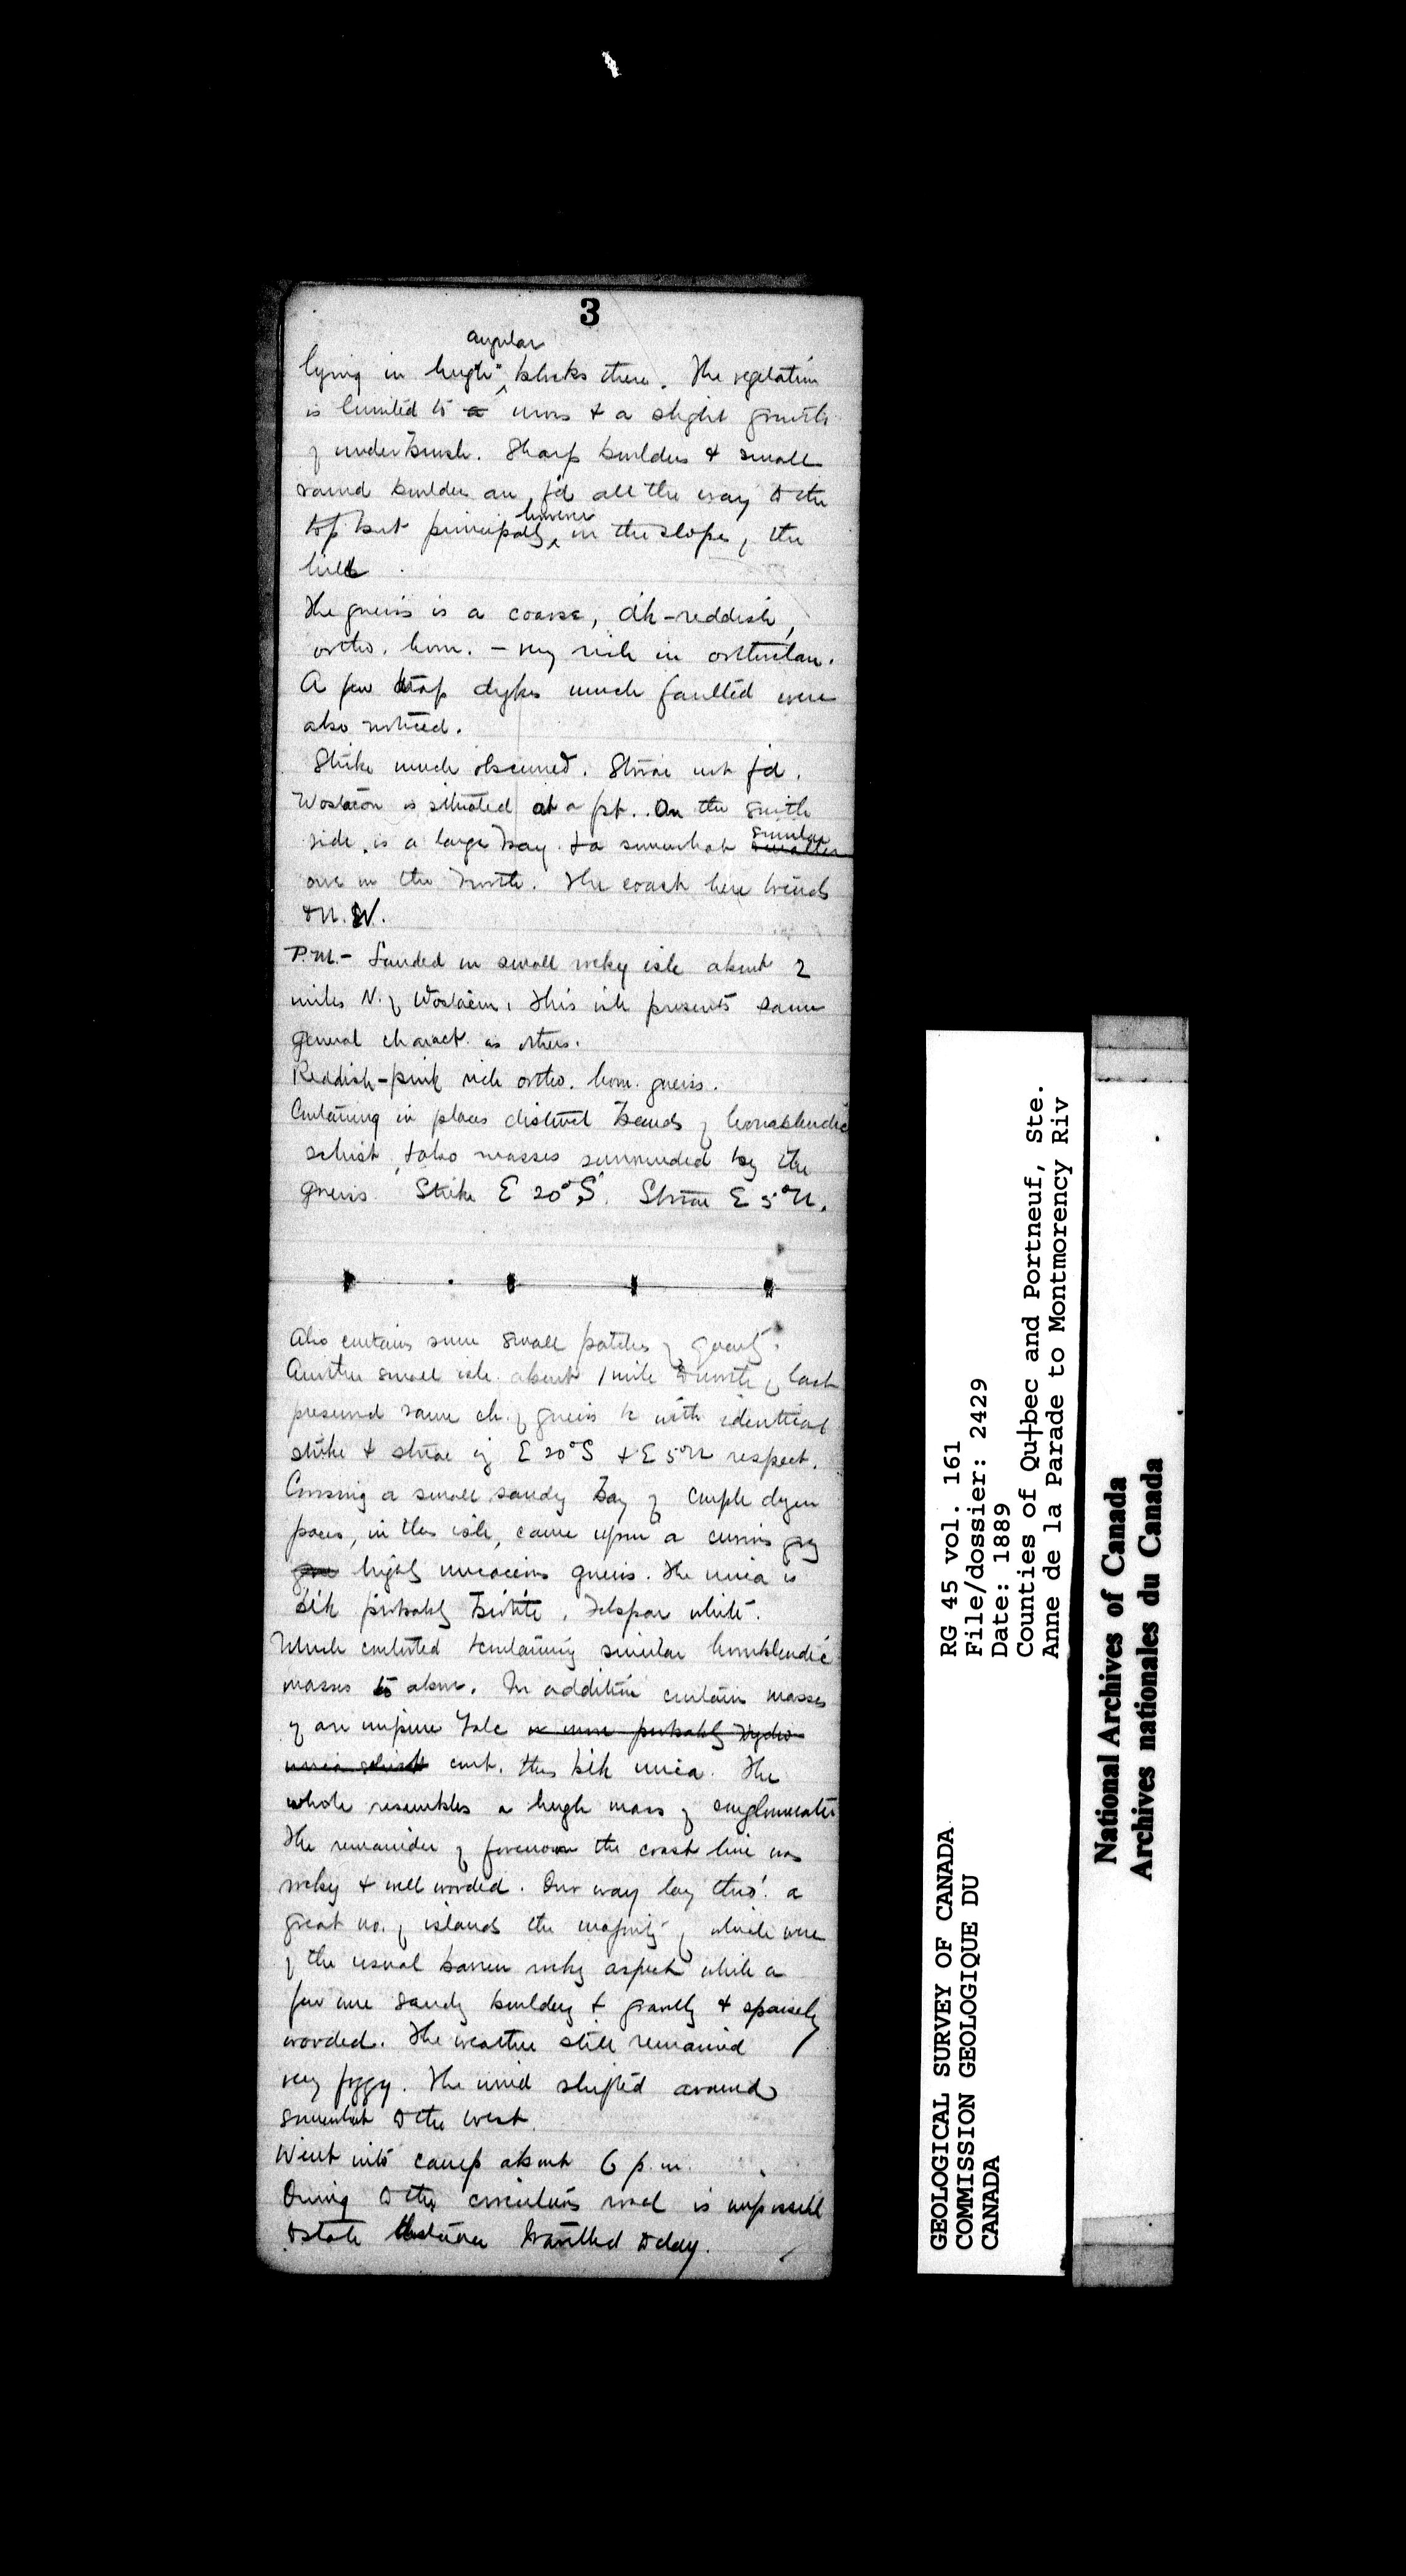 3
angular
lying in hugh blocks there. The vegetation
is limited to a moss & a slight growth
of underbrush. Sharp boulders & small
round boulders are f'd all the way to the
however
top but principally in the slope of the
hill
The gneiss is a coarse, dk-reddish,
ortho. horn. – very rich in orthoclase.
A few trap dykes much faulted were
also noticed.
Strike much obscured. Striae not f'd.
is situated at a pt. On the south
similar
side is a large bay & a somewhat smaller
one on the north. The coast here trends
N.W.
P.M. – Landed on small rocky isle about 2
miles N. of This isle presents same
general charact. as others.
Reddish-pink rich ortho. horn. gneiss.
Containing in places distinct bands of hornblendic
schist, & also masses surrounded by the
gneiss. Strike E 20° S. Striae E 5° N.
Also contains some small patches of quartz.
Another small isle about 1 mile to north of last
presented same ch. of gneiss &c with identical
strike & striae E 20° S & E 5° N respect.
Crossing a small sandy bay of couple dozen
paces, in this isle, came upon a curious grey
highly micaceous gneiss. The mica is
blk probably biotite. Felspar white.
Much contorted & containing similar hornblendic
masses to above. In addition contain masses
of an impure talc or more probably hydro
mica schist cont. this blk mica. The
whole resembles a hugh mass of conglomerate
The remainder of forenoon the coast line was
rocky & well wooded. Our way lay thro' a
great no. of islands the majority of which were
of the usual barren rocky aspect while a
few were sandy bouldery & gravelly & sparsely
wooded. The weather still remained
very foggy. The wind shifted around
somewhat to the west.
Went into camp about 6 p.m.
Owing to the circuitous road is impossible
to state distance travelled today.
RG 45 vol. 161
File/dossier: 2429
Date: 1889
Counties of Qu†bec and Portneuf, Ste.
Anne de la Parade to Montmorency Riv
GEOLOGICAL SURVEY OF CANADA
COMMISSION GEOLOGIQUE DU
CANADA
National Archives of Canada
Archives nationales du Canada